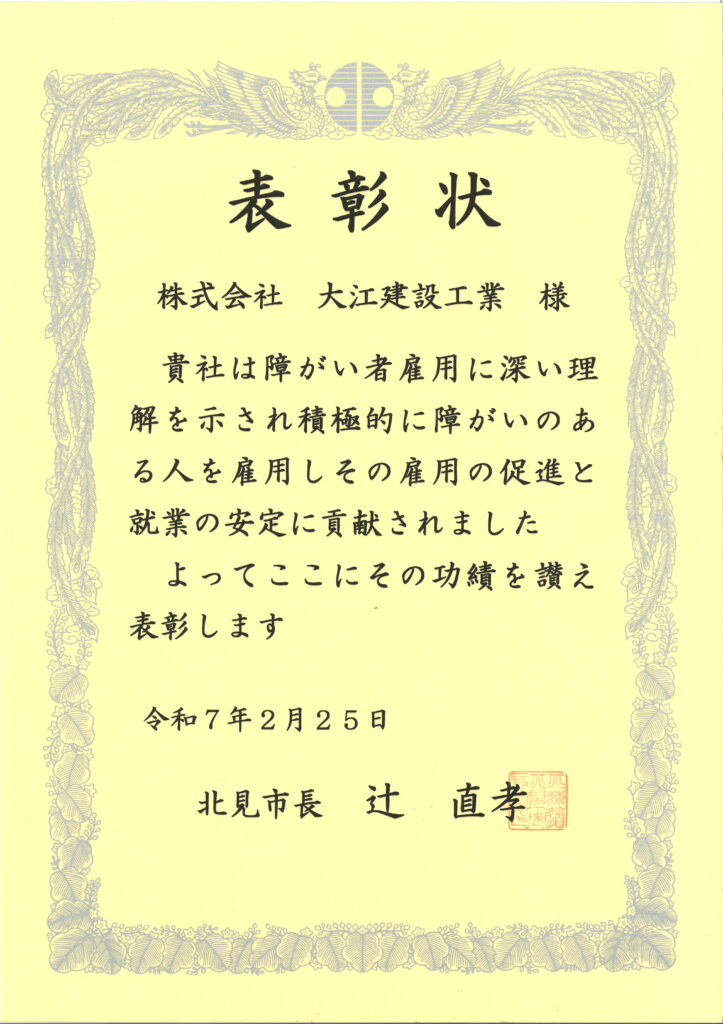 表彰状
株式会社　大江建設工業　様
貴社は障がい者雇用に深い理
解を示され積極的に障がいのあ
る人を雇用しその雇用の促進と
就業の安定に貢献されました
よってここにその功績を讃え
表彰します
令和７年２月２５日
北見市長　辻　直孝